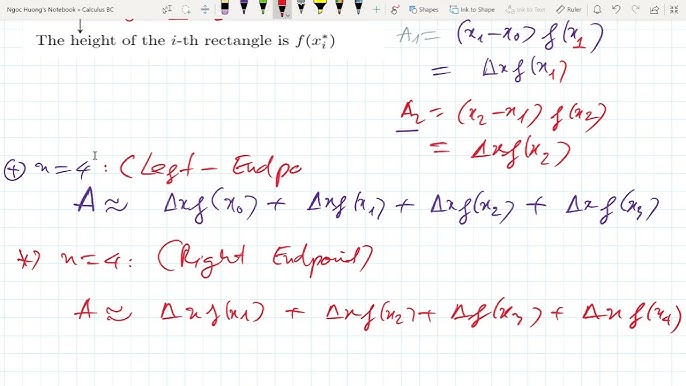 Ngoc Huong's Notebook » Calculus BC
Shapes Ink to Shape Ink to Text Ink to Math
The height of the i-th rectangle is f(x_i^*)
A₁ = (x₁-x₀) f(x₁)
= Δx f(x₁)
A₂ = (x₂-x₁) f(x₂)
= Δx f(x₂)
(+) n=4: (Left - Endpo
A ≈ Δx f(x₀) + Δx f(x₁) + Δx f(x₂) + Δx f(x₃)
*) n=4: (Right Endpoint)
A ≈ Δx f(x₁) + Δx f(x₂) + Δ f(x₃) + Δx f(x₄)